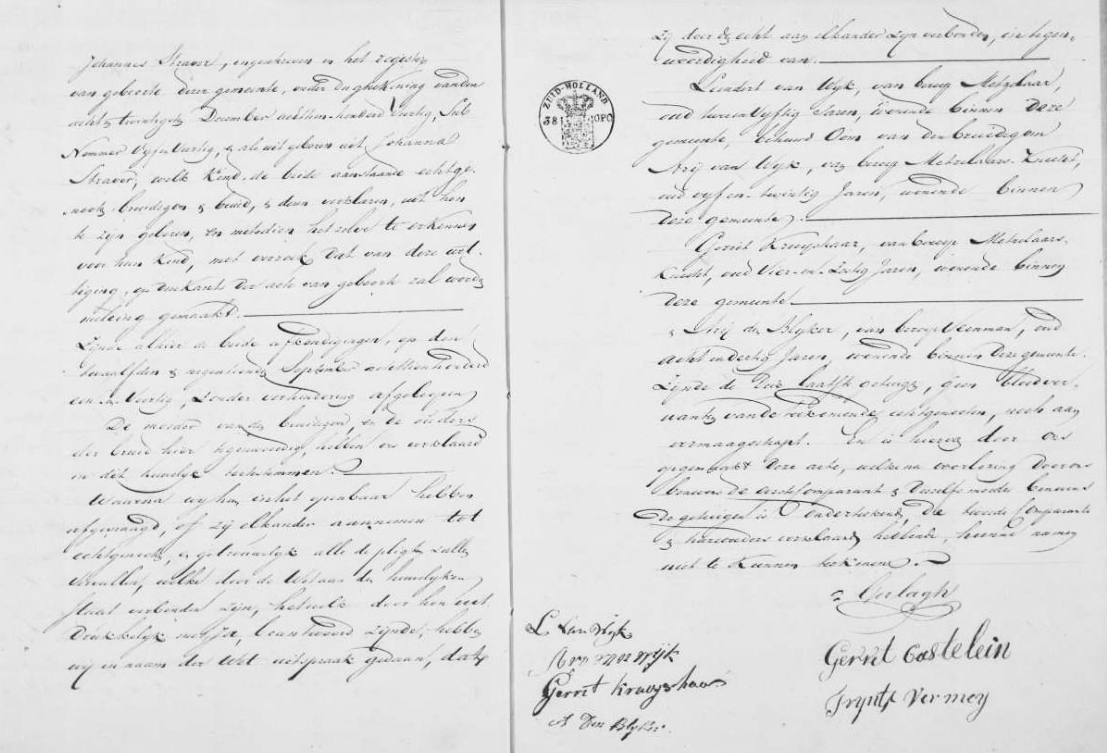 Johannes Straver, ingeschreven in het register
van geboorte dezer gemeente, onder dagtekening van den
acht & twintigste December achttien honderd Veertig, Sub
Nommer Vyf en Veertig, & als uit geboren uit Johanna
Straver, welk Kind de beide aanstaande echtge-
noote bruidegom & bruid, & denn verklaren, uit hen
te zijn geboren, en metodien hetzelve te erkennen
voor hun Kind, met verzoek dat van deze wet-
tiging, op de kant der acte van geboorte zal worde
melding gemaakt.
Zijnde alhier de beide afkondigingen, op den
twaalfden & negentienden September achttienhonderd
een en Veertig, zonder verhindering afgeloopen
De moeder van den bruidegom, en de ouders
der bruid hier tegenwoordig, hebben ons verklaard
in dit huwelijk toetestemmen.
Waarna wy hun in het openbaar hebben
afgevraagd, of zij elkander aannemen tot
echtgenoote, en getrouwelijk alle de pligte zullen
vervullen, welke door de Wet aan den huwelijken
staat verbonden zijn, hetwelk door hen uit-
drukkelijk met Ja, beantwoord zijnde, hebbe
wij in naam der Wet uitspraak gedaan, dat
zij door de echt aan elkander zijn verbonden, in tegen-
woordigheid van
ZUID-HOLLAND
Leendert van Wyk, van beroep Metzelaar,
oud twee en Vyftig Jaren, wonende binnen deze
gemeente, behuwd Oom van den bruidegom
Arij van Wyk, van beroep Metzelaars Knecht,
oud vyf en twintig Jaren, wonende binnen
deze gemeente
Gerrit Kruyshaar, van beroep Metselaars-
Knecht, oud Vier en Zestig Jaren, wonende binnen
deze gemeente
& Arij den Blyker, van beroep Veenman, oud
acht en dertig Jaren, wonende binnen deze gemeente.
Zijnde de twee laatste getuige, geen bloedver-
wante van de nieuwe echtgenooten, noch aan
vermaagschapt. En is hiervan door Ons
opgemaakt deze acte, welke na voorlezing door ons
benevens de eerste Comparant & deszelfs moeder benevens
de getuigen is onderteekend, de tweede Comparante
& hare ouders verklaard hebbende, hunne namen
niet te Kunnen teekenen.
Gerlagh
L Van Wyk
Arij van wijk
Gerrit Kruyshaar
A Den Blyker.
Gerrit Castelein
Tryntje Vermey